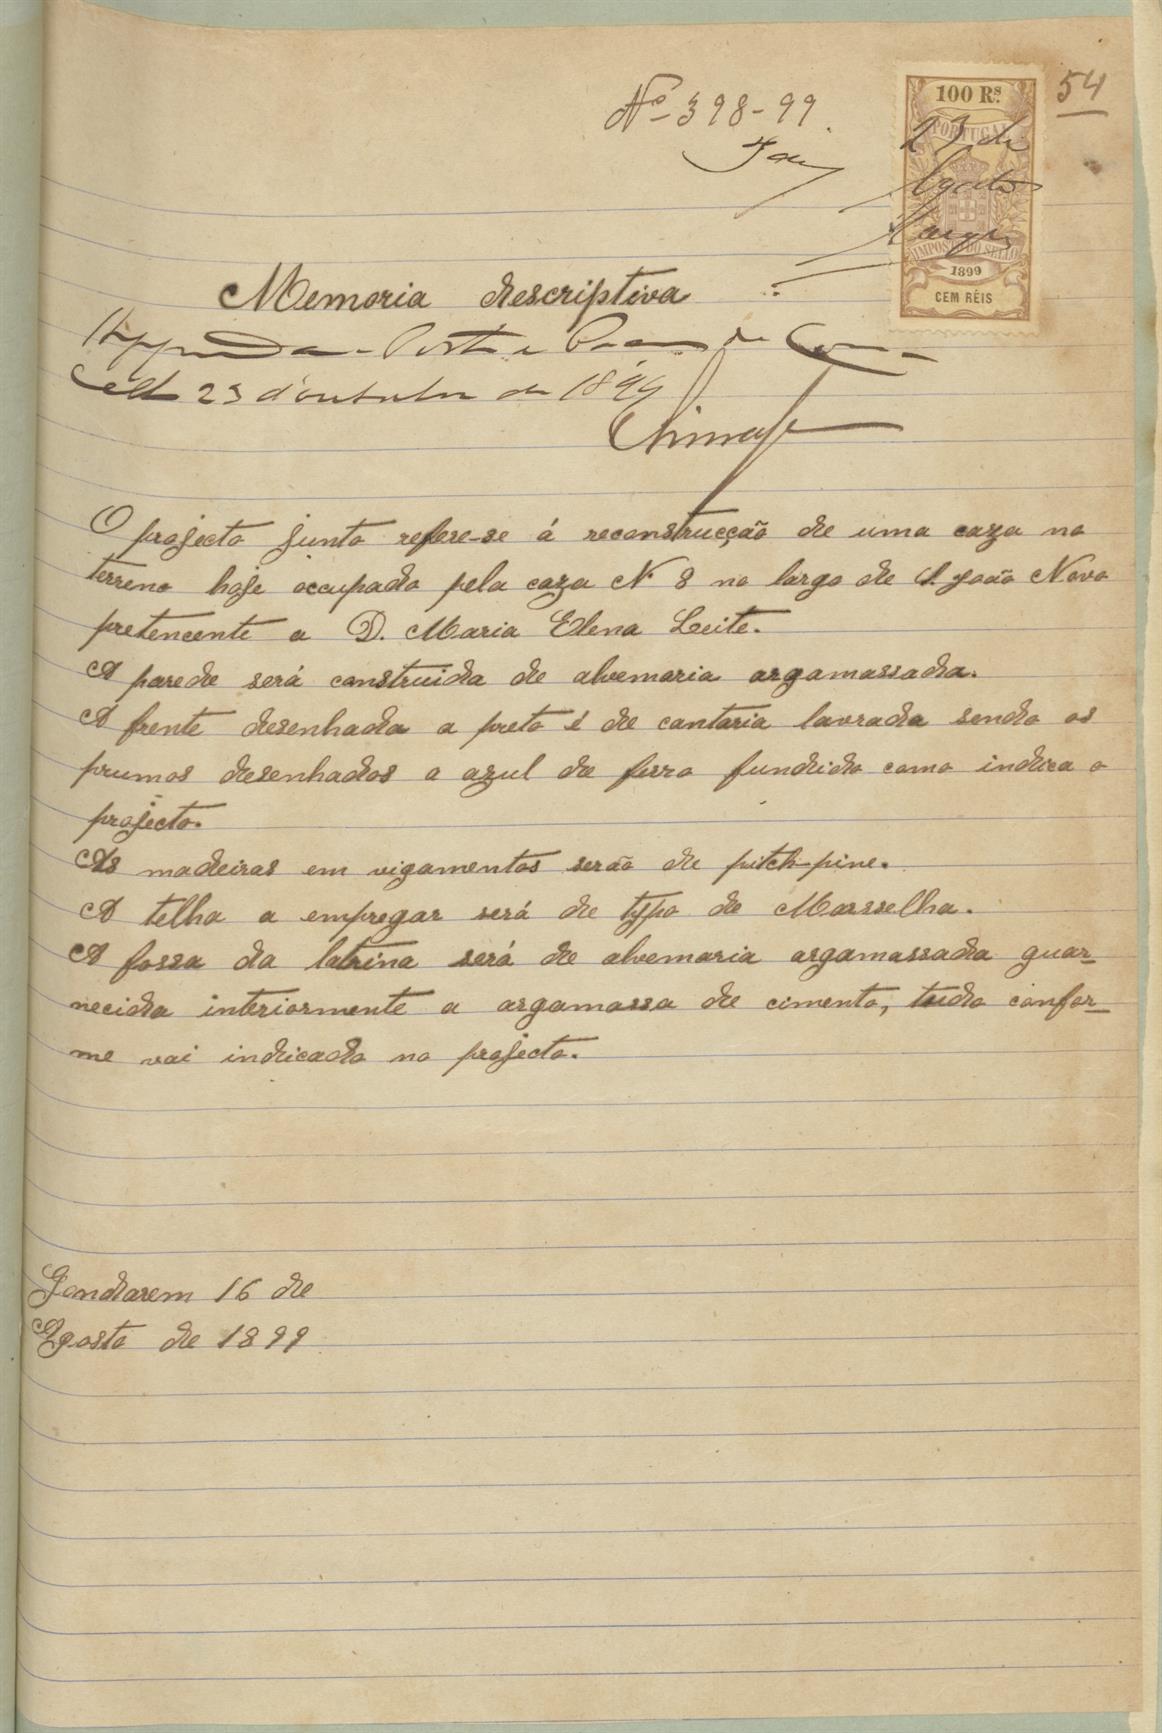 Nº 398-99
54
100 Rs.
PORTUGAL
23 de
Agosto
IMPOSTO DO SELLO
1899
CEM RÉIS
Memoria descriptiva
Approvada. Porto e Paços do Conc.
23 d'outubro de 1899
O projecto junto refere-se á reconstrucção de uma caza no
terreno hoje occupado pela caza N. 8 no largo de S. João Novo
pretencente a D. Maria Elena Leite.
A parede será construida de alvemaria argamassada.
A frente desenhada a preto é de cantaria lavrada sendo os
prumos desenhados a azul de ferro fundido como indica o
projecto.
As madeiras em vigamentos serão de pitch-pine.
A telha a empregar será de typo de Marsselha.
A fossa da latrina será de alvemaria argamassada guar-
necida interiormente a argamassa de cimento, tudo confor-
me vai indicado no projecto.
Gondarem 16 de
Agosto de 1899